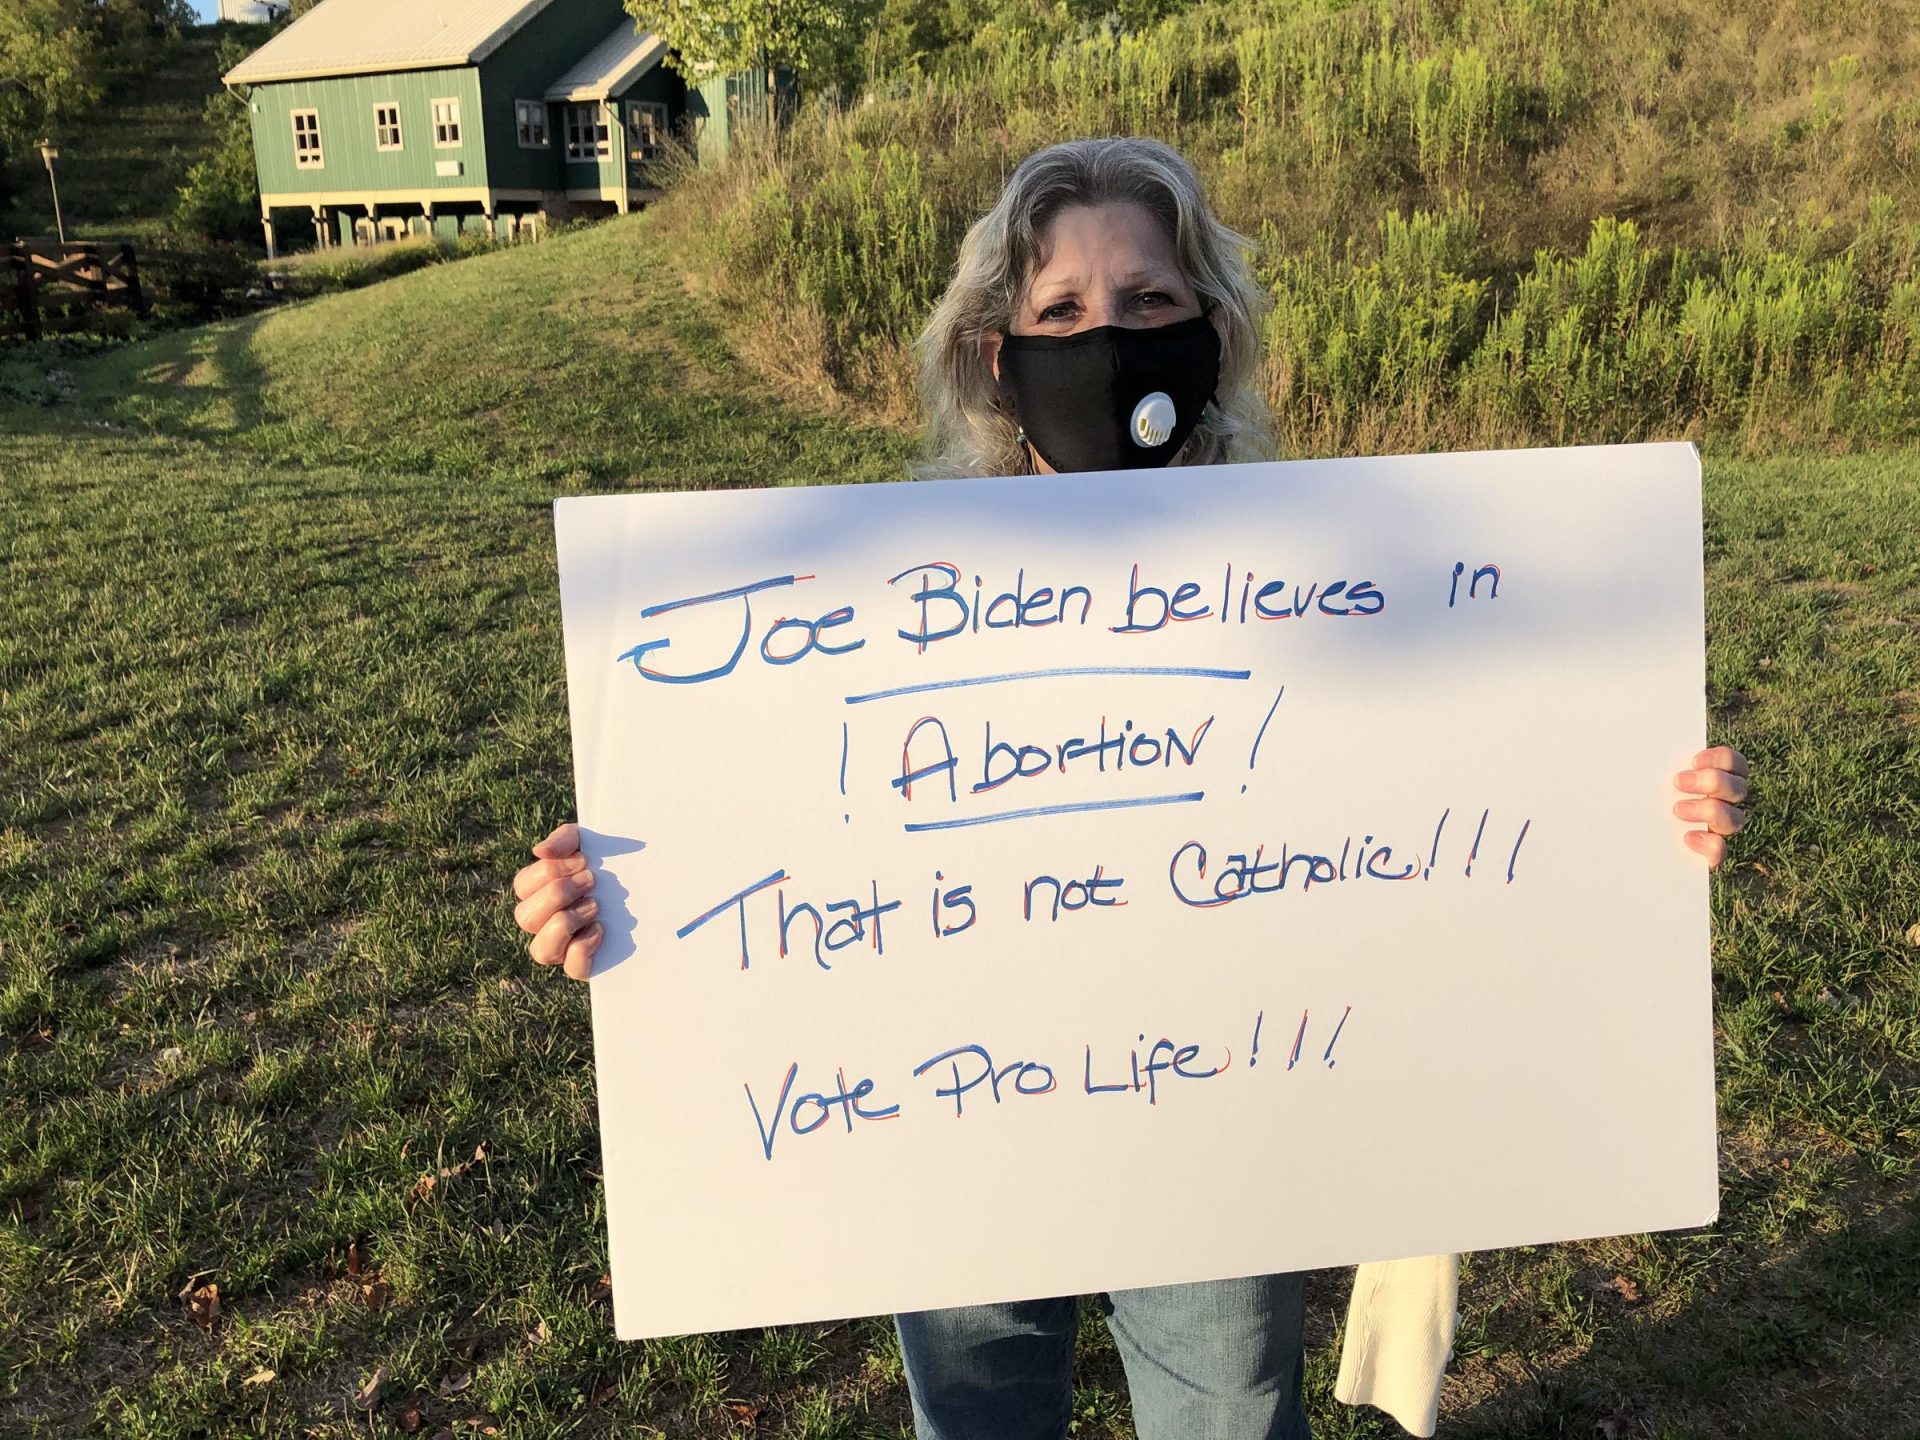 Joe Biden believes in
! Abortion !
That is not Catholic!!!
Vote Pro Life!!!